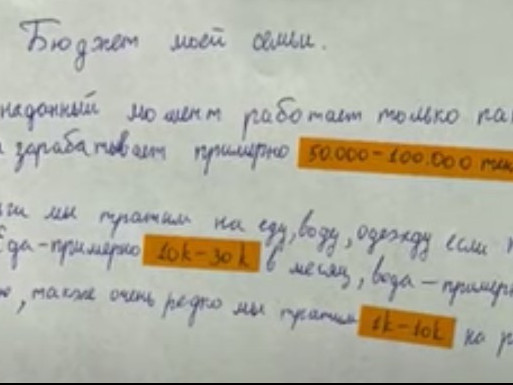 Бюджет моей семьи.
наданный момент работает только
зарабатывает примерно 50.000-100.000
мы тратим на еду, воду, одежду если
Еда-примерно 10k-30k в месяц, вода-
также очень редко мы тратим 1k-10k на